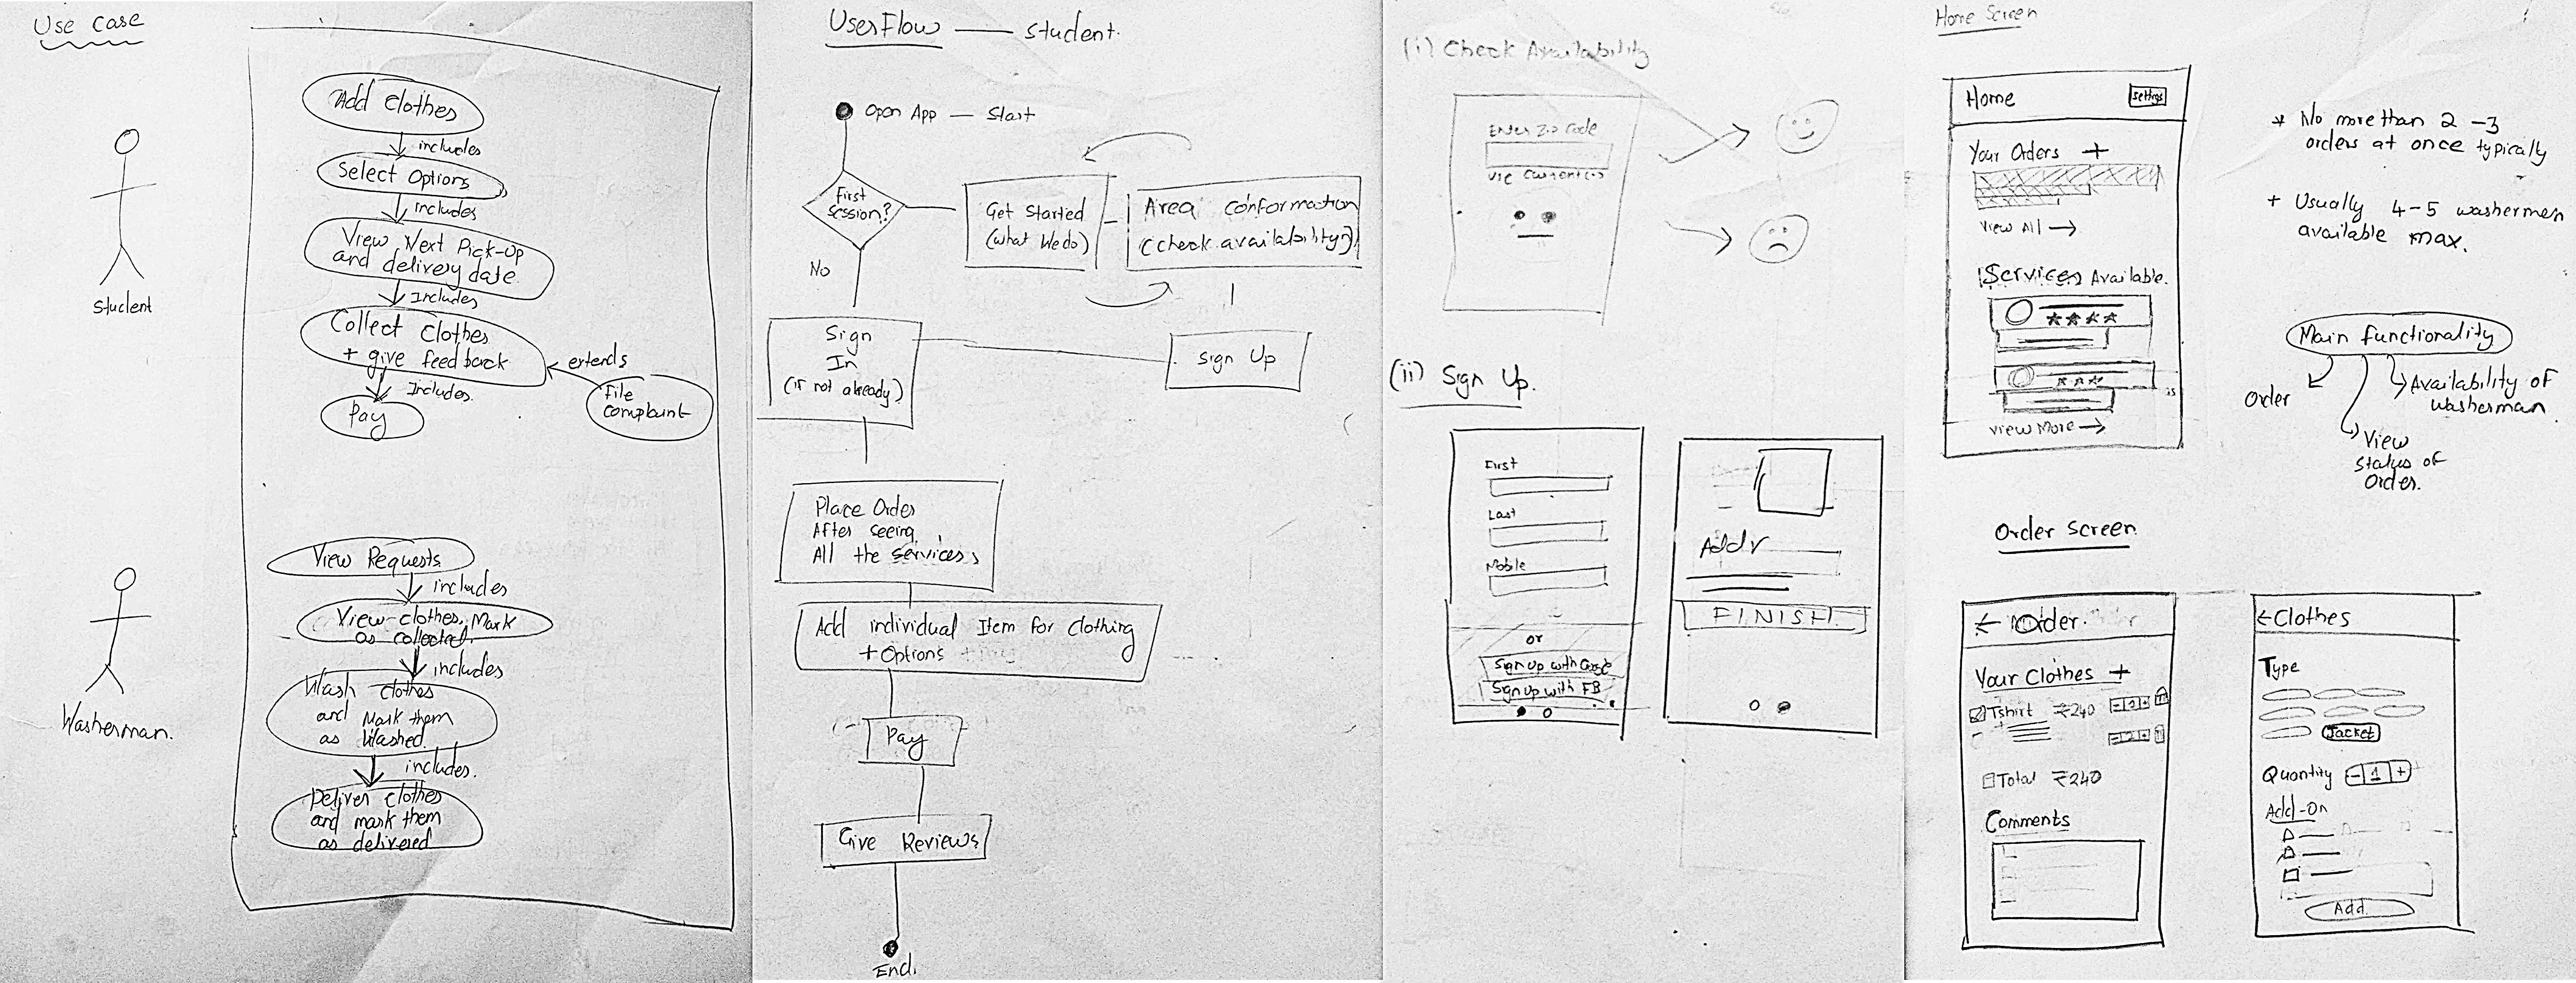 Use Case
Add Clothes
includes
Select Options
includes
View Next Pick-Up
and delivery date
Includes
Collect Clothes
+ give feedback
extends
File
complaint
Includes
Pay
Student
View Requests
includes
View clothes, Mark
as collected
includes
Wash clothes
and Mark them
as Washed
includes.
Deliver clothes
and mark them
as delivered
Washerman.
UserFlow — Student.
Open App — Start
First
Session?
No
Get Started
(what We do)
Area Conformation
(check availability)
Sign
In
(if not already)
Sign Up
Place Order
After seeing
All the services
Add individual Item for clothing
+ Options
Pay
Give Reviews
End.
(i) Check Availability
Enter Zip Code
(ii) Sign Up.
First
Last
Mobile
or
Sign up with Google
Sign up with FB
Addr
FINISH
Home Screen
Home
Settings
Your Orders +
View All →
Services Available.
View More →
* No more than 2 -3
orders at once typically
+ Usually 4-5 washermen
available max.
Main functionality
Order
Availability of
Washerman
View
Status of
Order.
Order Screen
← Order
Your Clothes +
Tshirt ₹240 - 1 +
Total ₹240
Comments
← Clothes
Type
Jacket
Quantity - 1 +
Add-On
Add